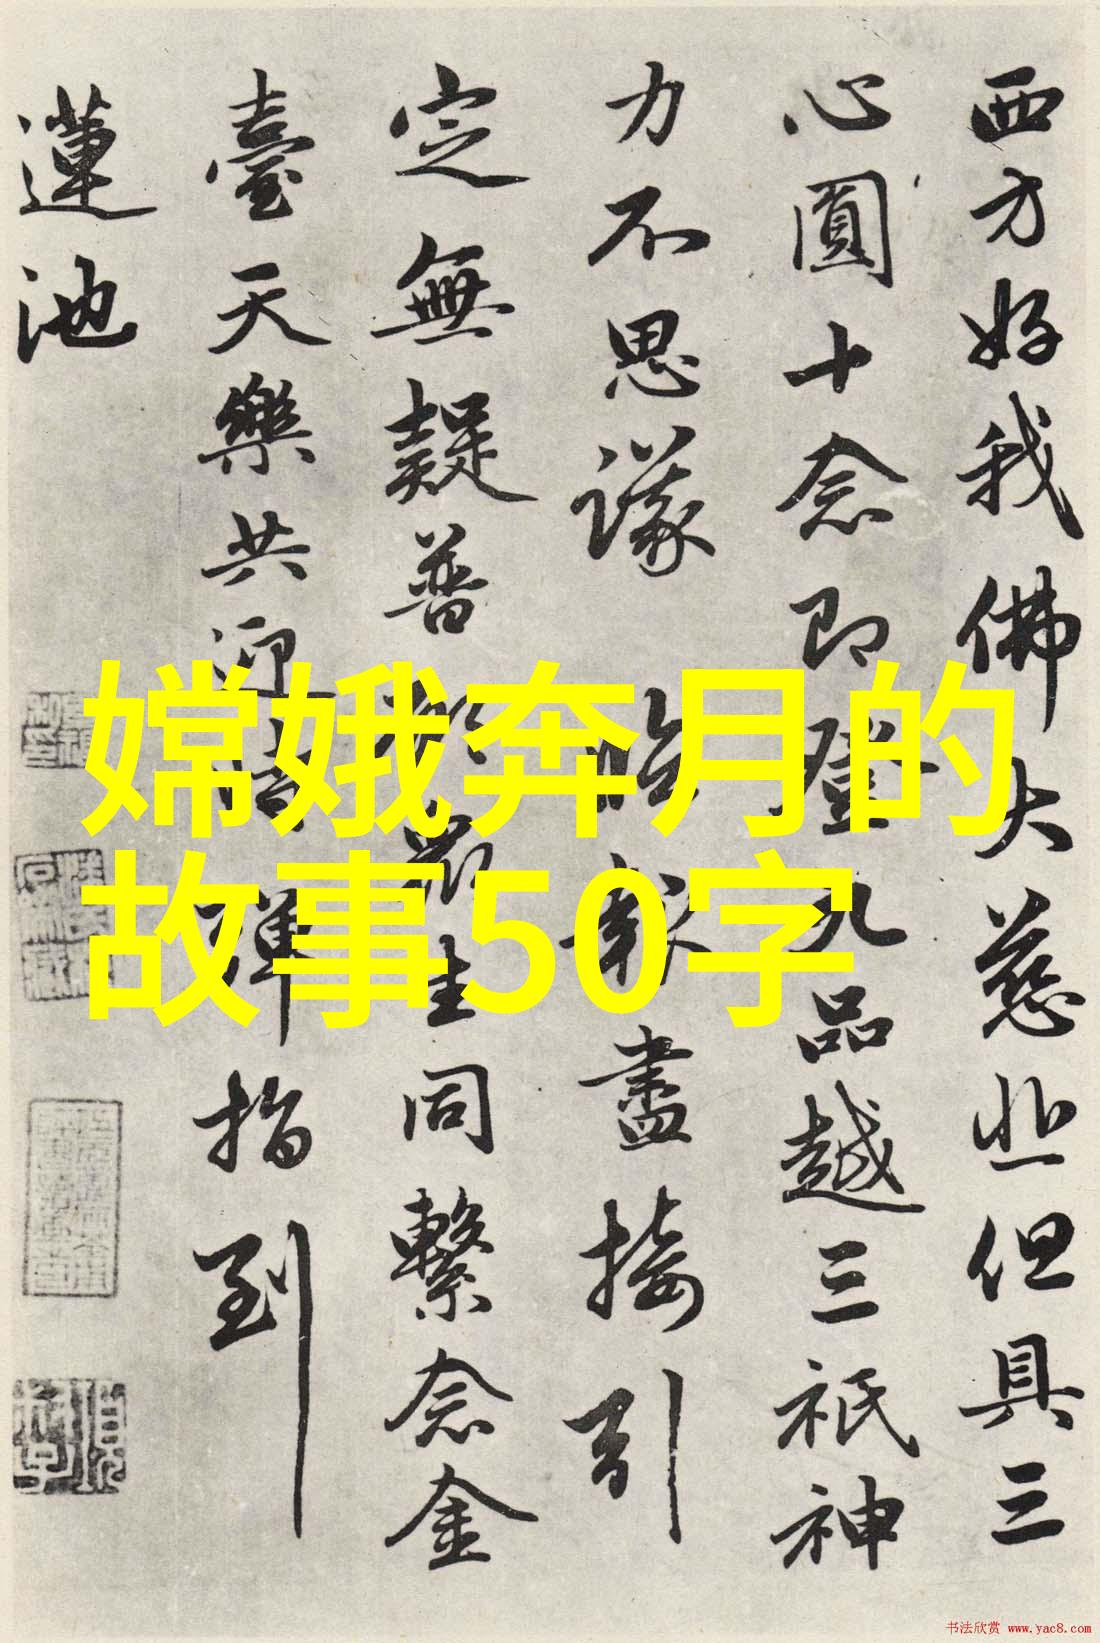 嫦娥奔月的
故事50字
西方好我佛大慈悲但具三
心圓十念即登九品越三祇神
力不思議 臨報盡接引
定無疑普願眾生同繫念金
臺天樂共迎時彈指到
蓮池
书法欣赏 www.yac8.com